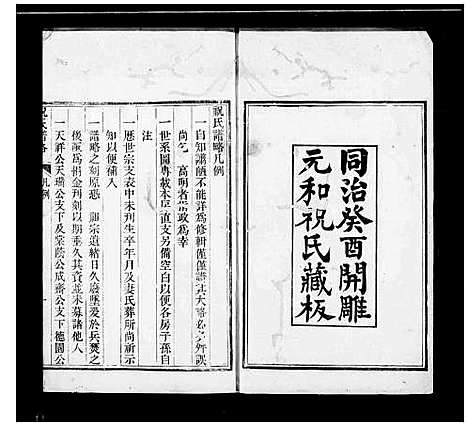 同治癸酉開雕
元和祝氏藏板
祝氏譜略凡例
一自知譾陋不能詳為修輯僅僅譜其大略名之
尚乞高明者崇政為幸
一世系圖專載本直支另備空白以便各房子孫自
注
一歷世宗支表中未刊生卒年月及妻氏葬所尚祈示
知以便補入
一譜略之刻原恐宗遠緒日久廢墜爰於兵燹之
後為捐金刊刻以期垂久其資並未募諸他人
一天祥公天瑞公支下及棠蔭公成齋公支下德園公
祝氏譜略
凡例
一